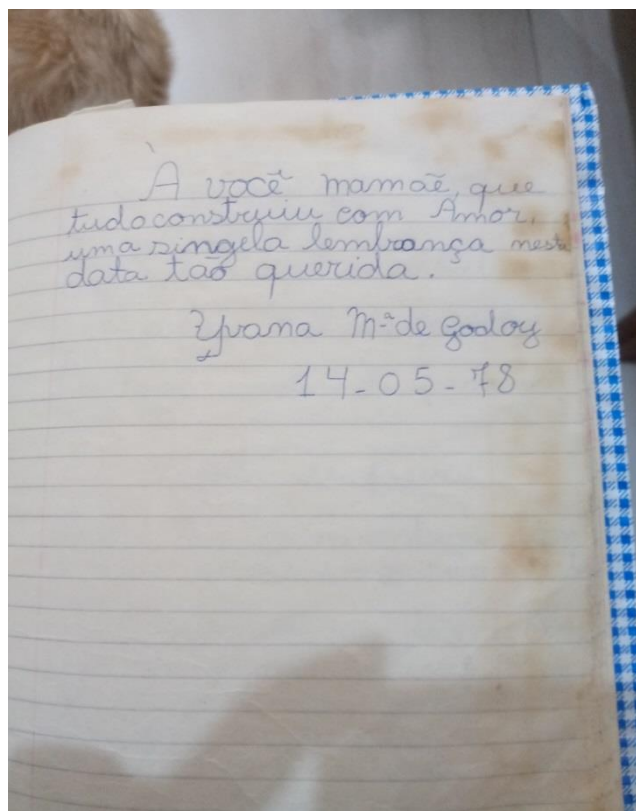 À você mamãe, que
tudo construiu com Amor,
uma singela lembrança nesta
data tão querida.
Yvana Mª de Godoy
14-05-78